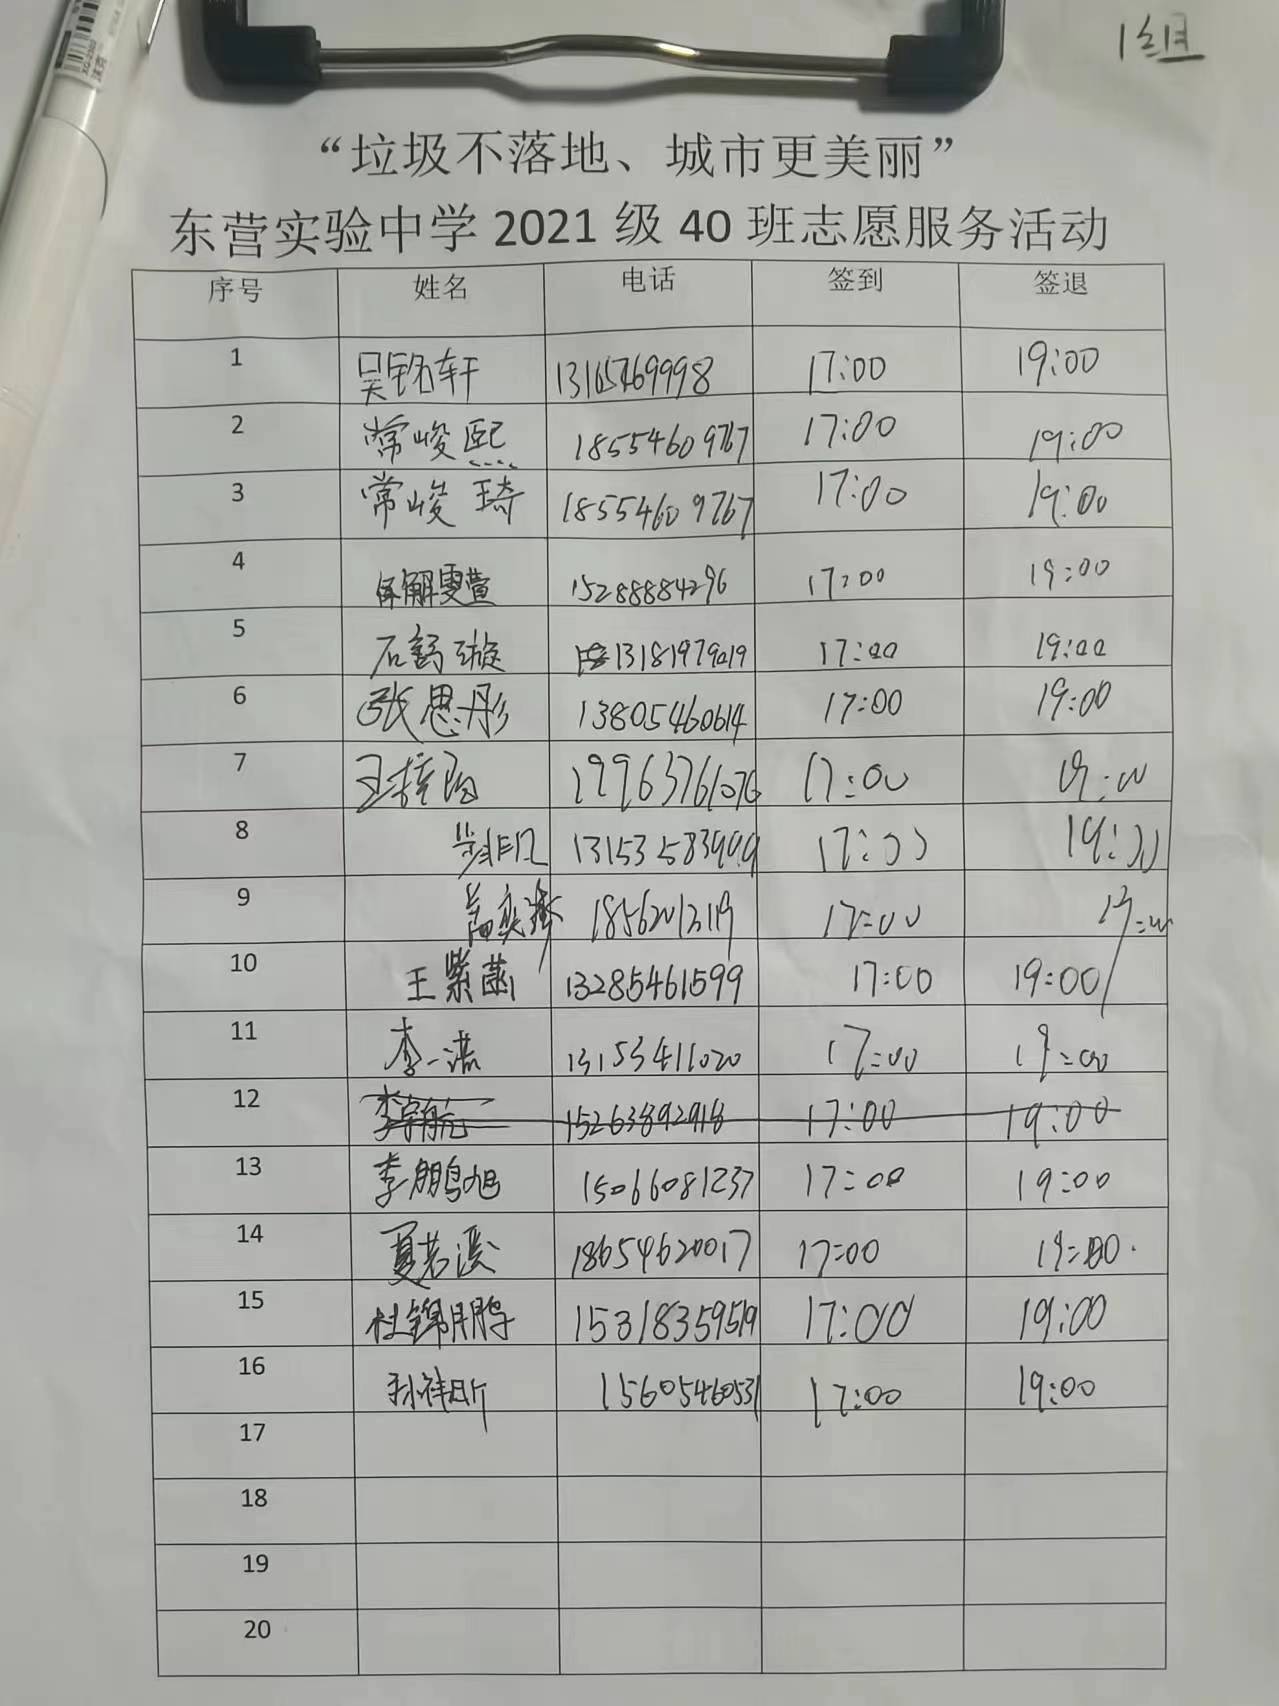 1组
“垃圾不落地、城市更美丽”
东营实验中学 2021 级 40 班志愿服务活动
序号 姓名 电话 签到 签退
1 吴铭轩 13165769998 17:00 19:00
2 常峻熙 18554609767 17:00 19:00
3 常峻琦 18554609767 17:00 19:00
4 解雯萱 15288884296 17:00 19:00
5 石舒璇 13181979019 17:00 19:00
6 张思彤 13805460614 17:00 19:00
7 19963761076 17:00 19:00
8 步非凡 13153583999 17:00 19:00
9 18562013119 17:00 19:00
10 王紫菡 13285461599 17:00 19:00
11 李一诺 13153411020 17:00 19:00
12 李宇航 15263892918 17:00 19:00
13 李鹏旭 15066081237 17:00 19:00
14 夏若溪 18654620017 17:00 19:00
15 杜锦鹏 15318359519 17:00 19:00
16 孙祥昕 15605460531 17:00 19:00
17
18
19
20